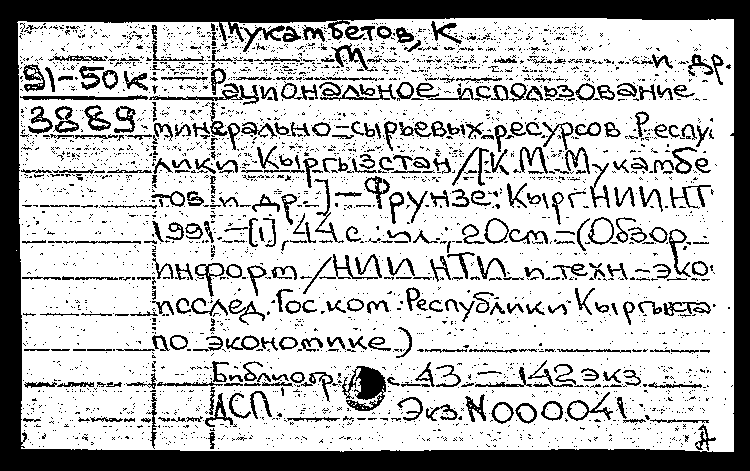 Мукамбетов, К
М и др.
91-50к Рациональное использование
3889 минерально-сырьевых ресурсов Респу
лики Кыргызстан/[К.М.Мукамбе
тов и др.].-Фрунзе:КыргНИИНТ
1991.-[1],44с.:ил.;20см-(Обзор.
информ./НИИ НТИ и техн.-эко
исслед.Гос.ком.Республики Кыргызста
по экономике)
Библиогр.: с 43.-142экз
ДСП. Экз.N000041.